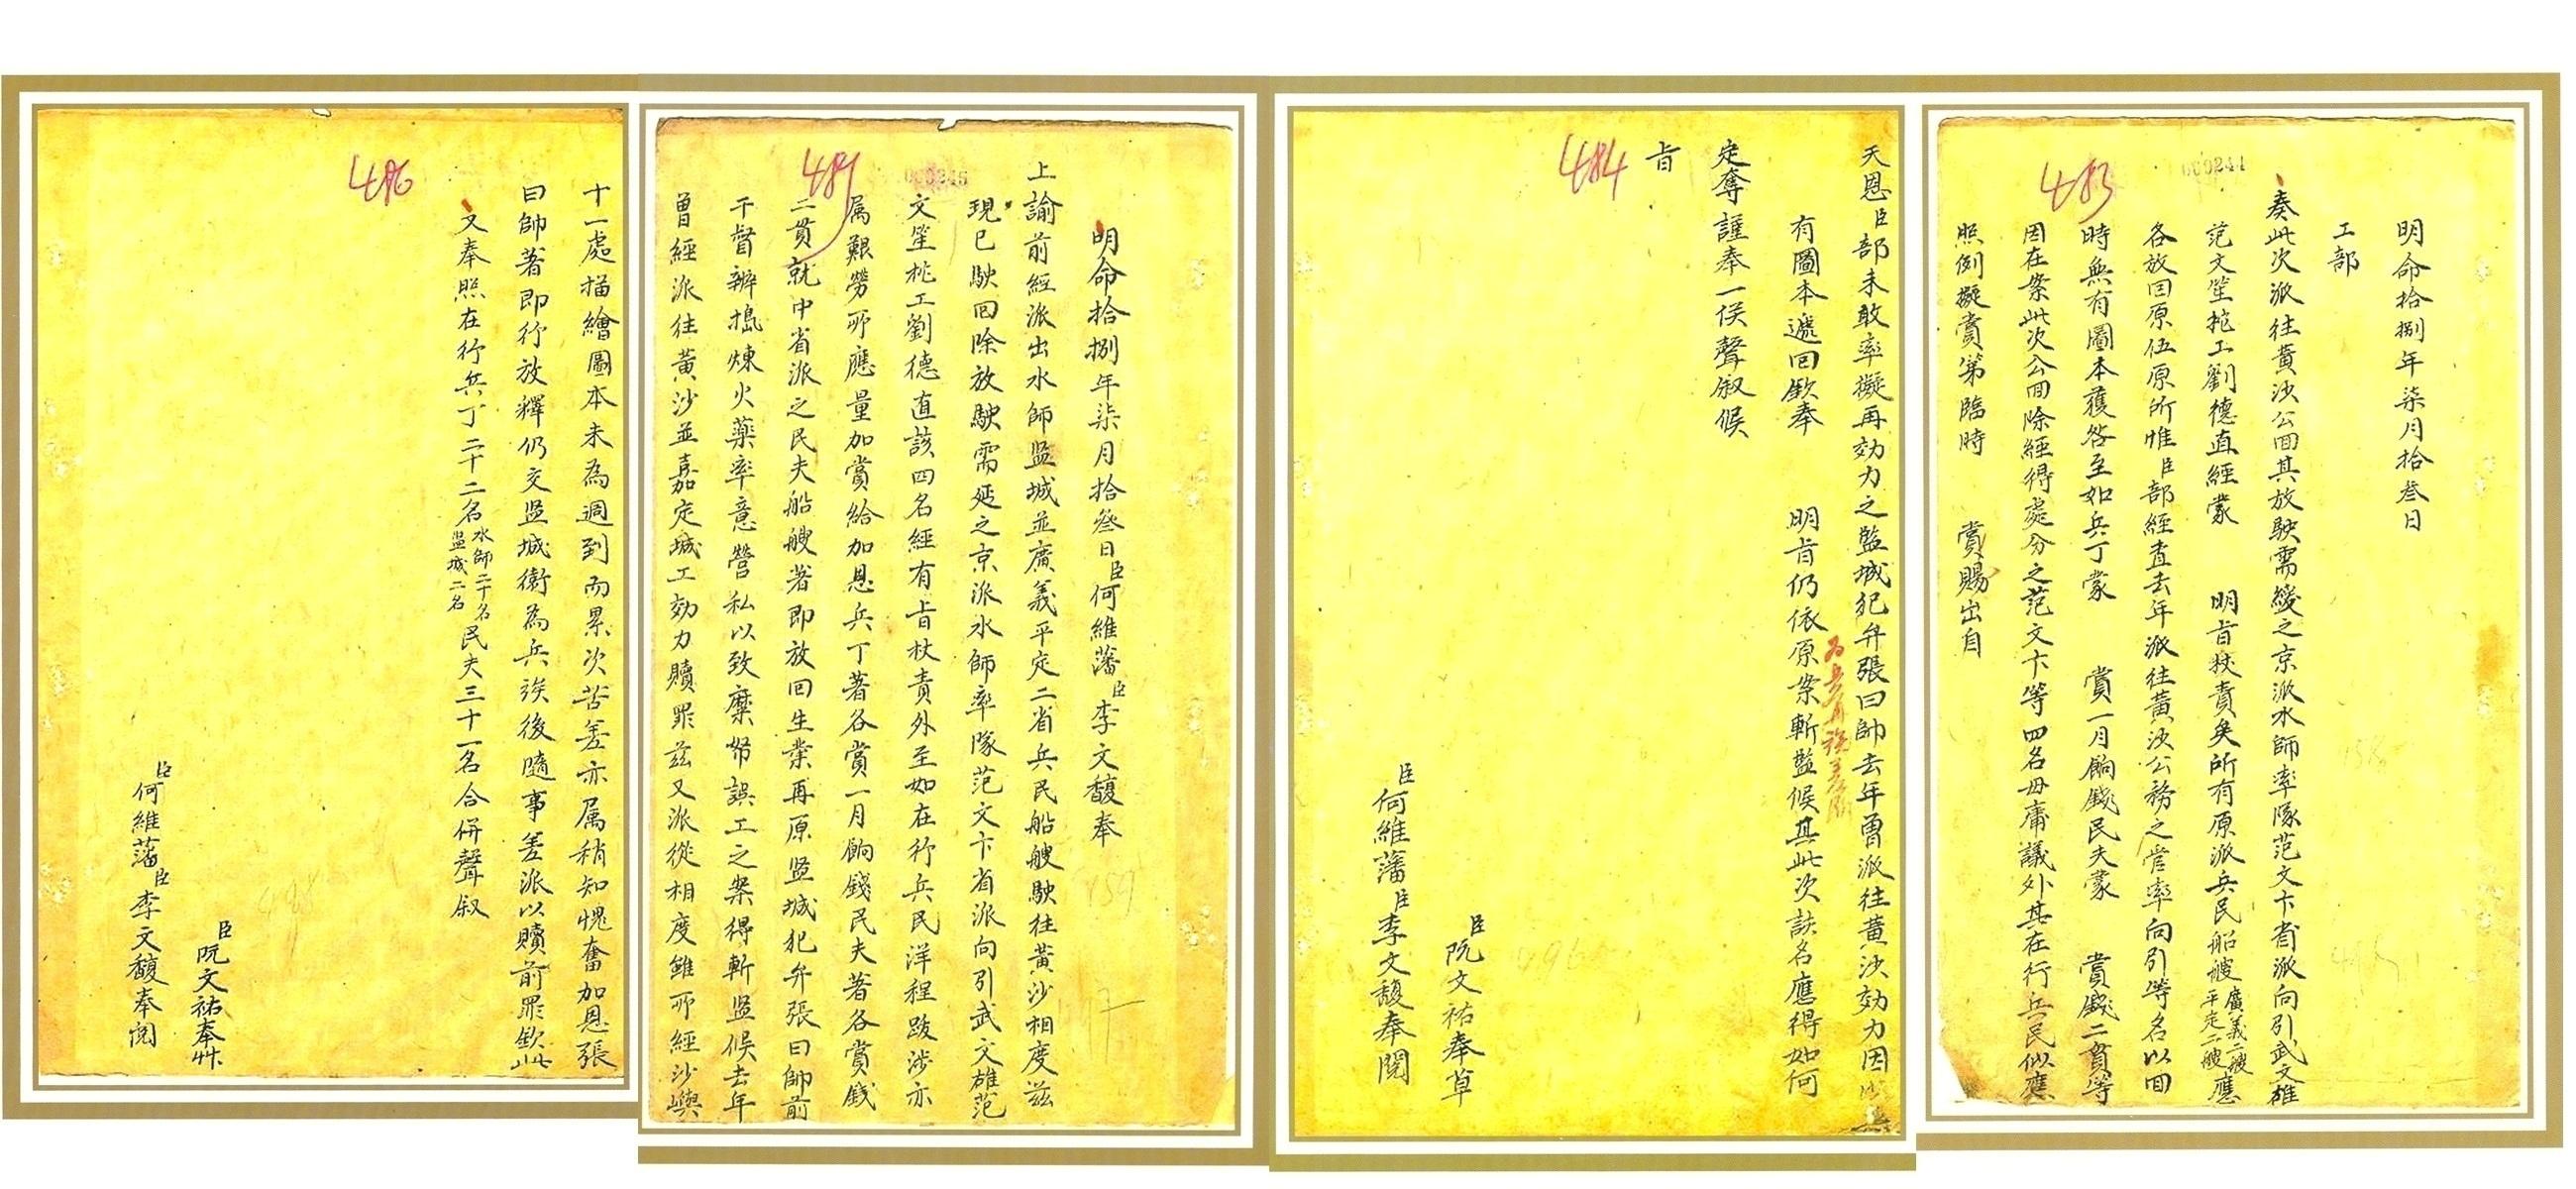 000244
483
明命拾捌年柒月拾叁日
工部
奏此次派往黄沙公回其放駛需緩之京派水師率隊范文卞省派向引武文雄
范文笙舵工劉德直經蒙　明旨杖責矣所有原派兵民船艘廣義二艘平定二艘應
各放回原伍原所惟臣部經查去年派往黄沙公務之管率向引等名以回
時無有圖本獲咎至如兵丁蒙　賞一月餉錢民夫蒙　賞錢二貫等
因在案此次公回除經得處分之范文卞等四名毋庸議外其在行兵民似應
照例擬賞第臨時　賞賜出自
天恩臣部未敢率擬再効力之監城犯弁張曰帥去年曾派往黄沙効力因
有圖本遞回欽奉　明旨仍依原案斬監候其此次該名應得如何
定奪謹奉一俟聲叙候
旨
484
臣阮文祐奉草
臣何維藩臣李文馥奉閲
000245
明命拾捌年柒月拾叁日臣何維藩臣李文馥奉
上諭前經派出水師監城並廣義平定二省兵民船艘駛往黄沙相度兹
現已駛回除放駛需延之京派水師率隊范文卞省派向引武文雄范
文笙桃工劉德直該四名經有旨杖責外至如在行兵民洋程跋涉亦
属艱勞所應量加賞給加恩兵丁著各賞一月餉錢民夫著各賞錢
二貫就中省派之民夫船艘著即放回生業再原监城犯弁張曰帥前
干督辦搗煉火藥率意營私以致糜帑誤工之案得斬监候去年
曾經派往黄沙並嘉定城工効力贖罪兹又派從相度雖所經沙嶼
十一處描繪圖本未為週到而累次苦差亦属稍知愧奮加恩張
曰帥著即行放釋仍交监城衛為兵俟後隨事差派以贖前罪欽此
又奉照在行兵丁二十二名水師二十名监城二名民夫三十一名合併聲叙
486
臣阮文祐奉草
臣何維藩臣李文馥奉閲